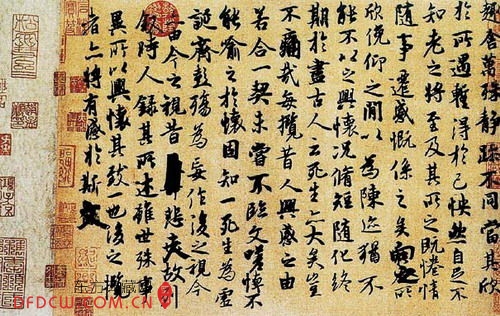 趣舍萬殊靜躁不同當其欣
於所遇暫得於己怏然自足不
知老之將至及其所之既惓情
隨事遷感慨係之矣向之所
欣俛仰之閒以為陳迹猶不
能不以之興懷況脩短隨化終
期於盡古人云死生亦大矣豈
不痛哉每攬昔人興感之由
若合一契未嘗不臨文嗟悼不
能喻之於懷固知一死生為虛
誕齊彭殤為妄作後之視今
亦由今之視昔悲夫故列
敘時人錄其所述雖世殊事
異所以興懷其致一也後之攬
者亦將有感於斯文
DFDCW.COM.CN